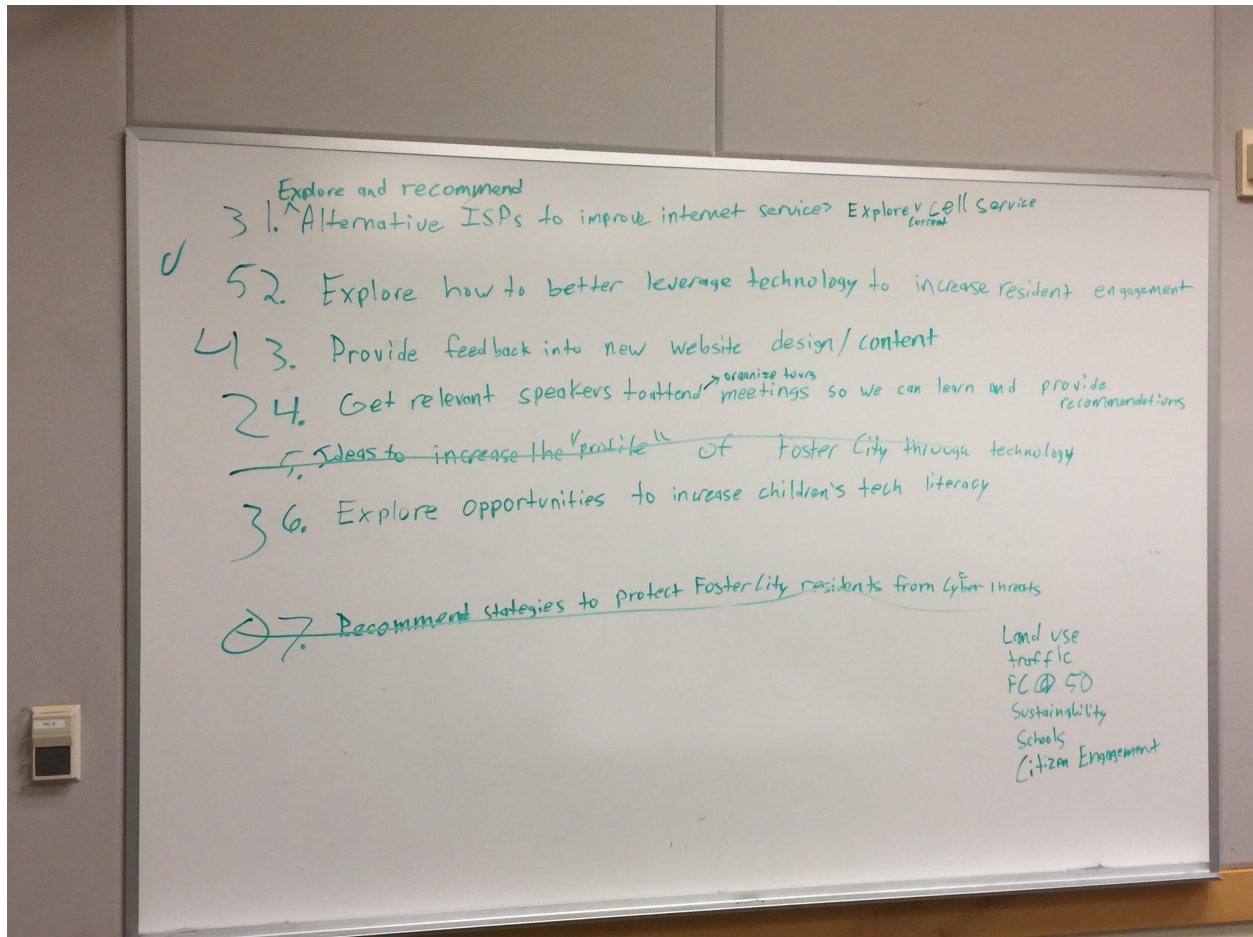 Explore and recommend
3 1. ^ Alternative ISPs to improve internet service? Explore v cell service
current
5 2. Explore how to better leverage technology to increase resident engagement
4 3. Provide feedback into new website design/content
organize tours
2 4. Get relevant speakers to attend meetings so we can learn and provide
recommendations
5. Ideas to increase the "profile" of Foster City through technology
3 6. Explore opportunities to increase children's tech literacy
0 7. Recommend stategies to protect Foster City residents from Cyber Threats
Land use
traffic
FC @ 50
Sustainability
Schools
Citizen Engagement